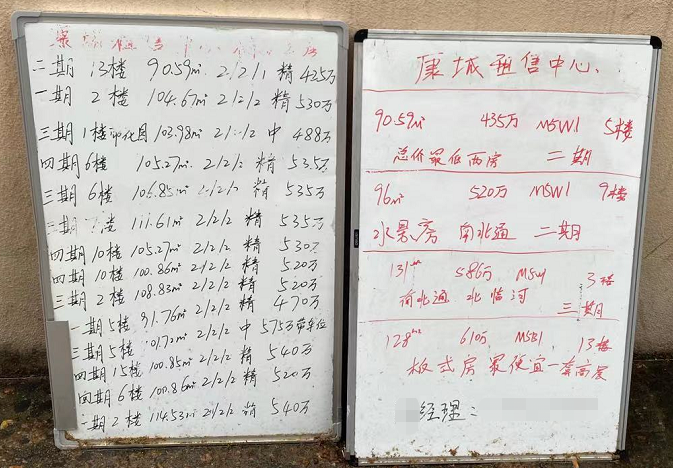 租售
二期 13楼 90.59㎡ 2/2/1 精 435万
一期 2楼 104.67㎡ 2/2/2 精 530万
三期 1楼 花园 103.98㎡ 2/2 中 488万
四期 6楼 105.27㎡ 2/2/2 精 535万
三期 6楼 106.85㎡ 2/2/2 精 535万
三期 楼 111.61㎡ 2/2/2 精 535万
四期 10楼 105.27㎡ 2/2/2 精 530万
四期 10楼 100.86㎡ 2/2/2 精 520万
三期 2楼 108.83㎡ 2/2/2 精 470万
一期 5楼 91.76㎡ 2/2/2 中 575万带车位
三期 5楼 2/2/2 精 540万
四期 15楼 100.85㎡ 2/2/2 精 520万
四期 6楼 100.86㎡ 2/2/2 精
二期 2楼 114.53㎡ 2/2/2 精 540万
康城租售中心
90.59㎡ 435万 M5W1 5楼
总价最低两房 二期
96㎡ 520万 M5W1 9楼
水景房 南北通 二期
131㎡ 586万 M5W1 3楼
南北通 北临河 三期
128㎡ 610万 M5B1 13楼
板式房 最便宜一套高层
经理: